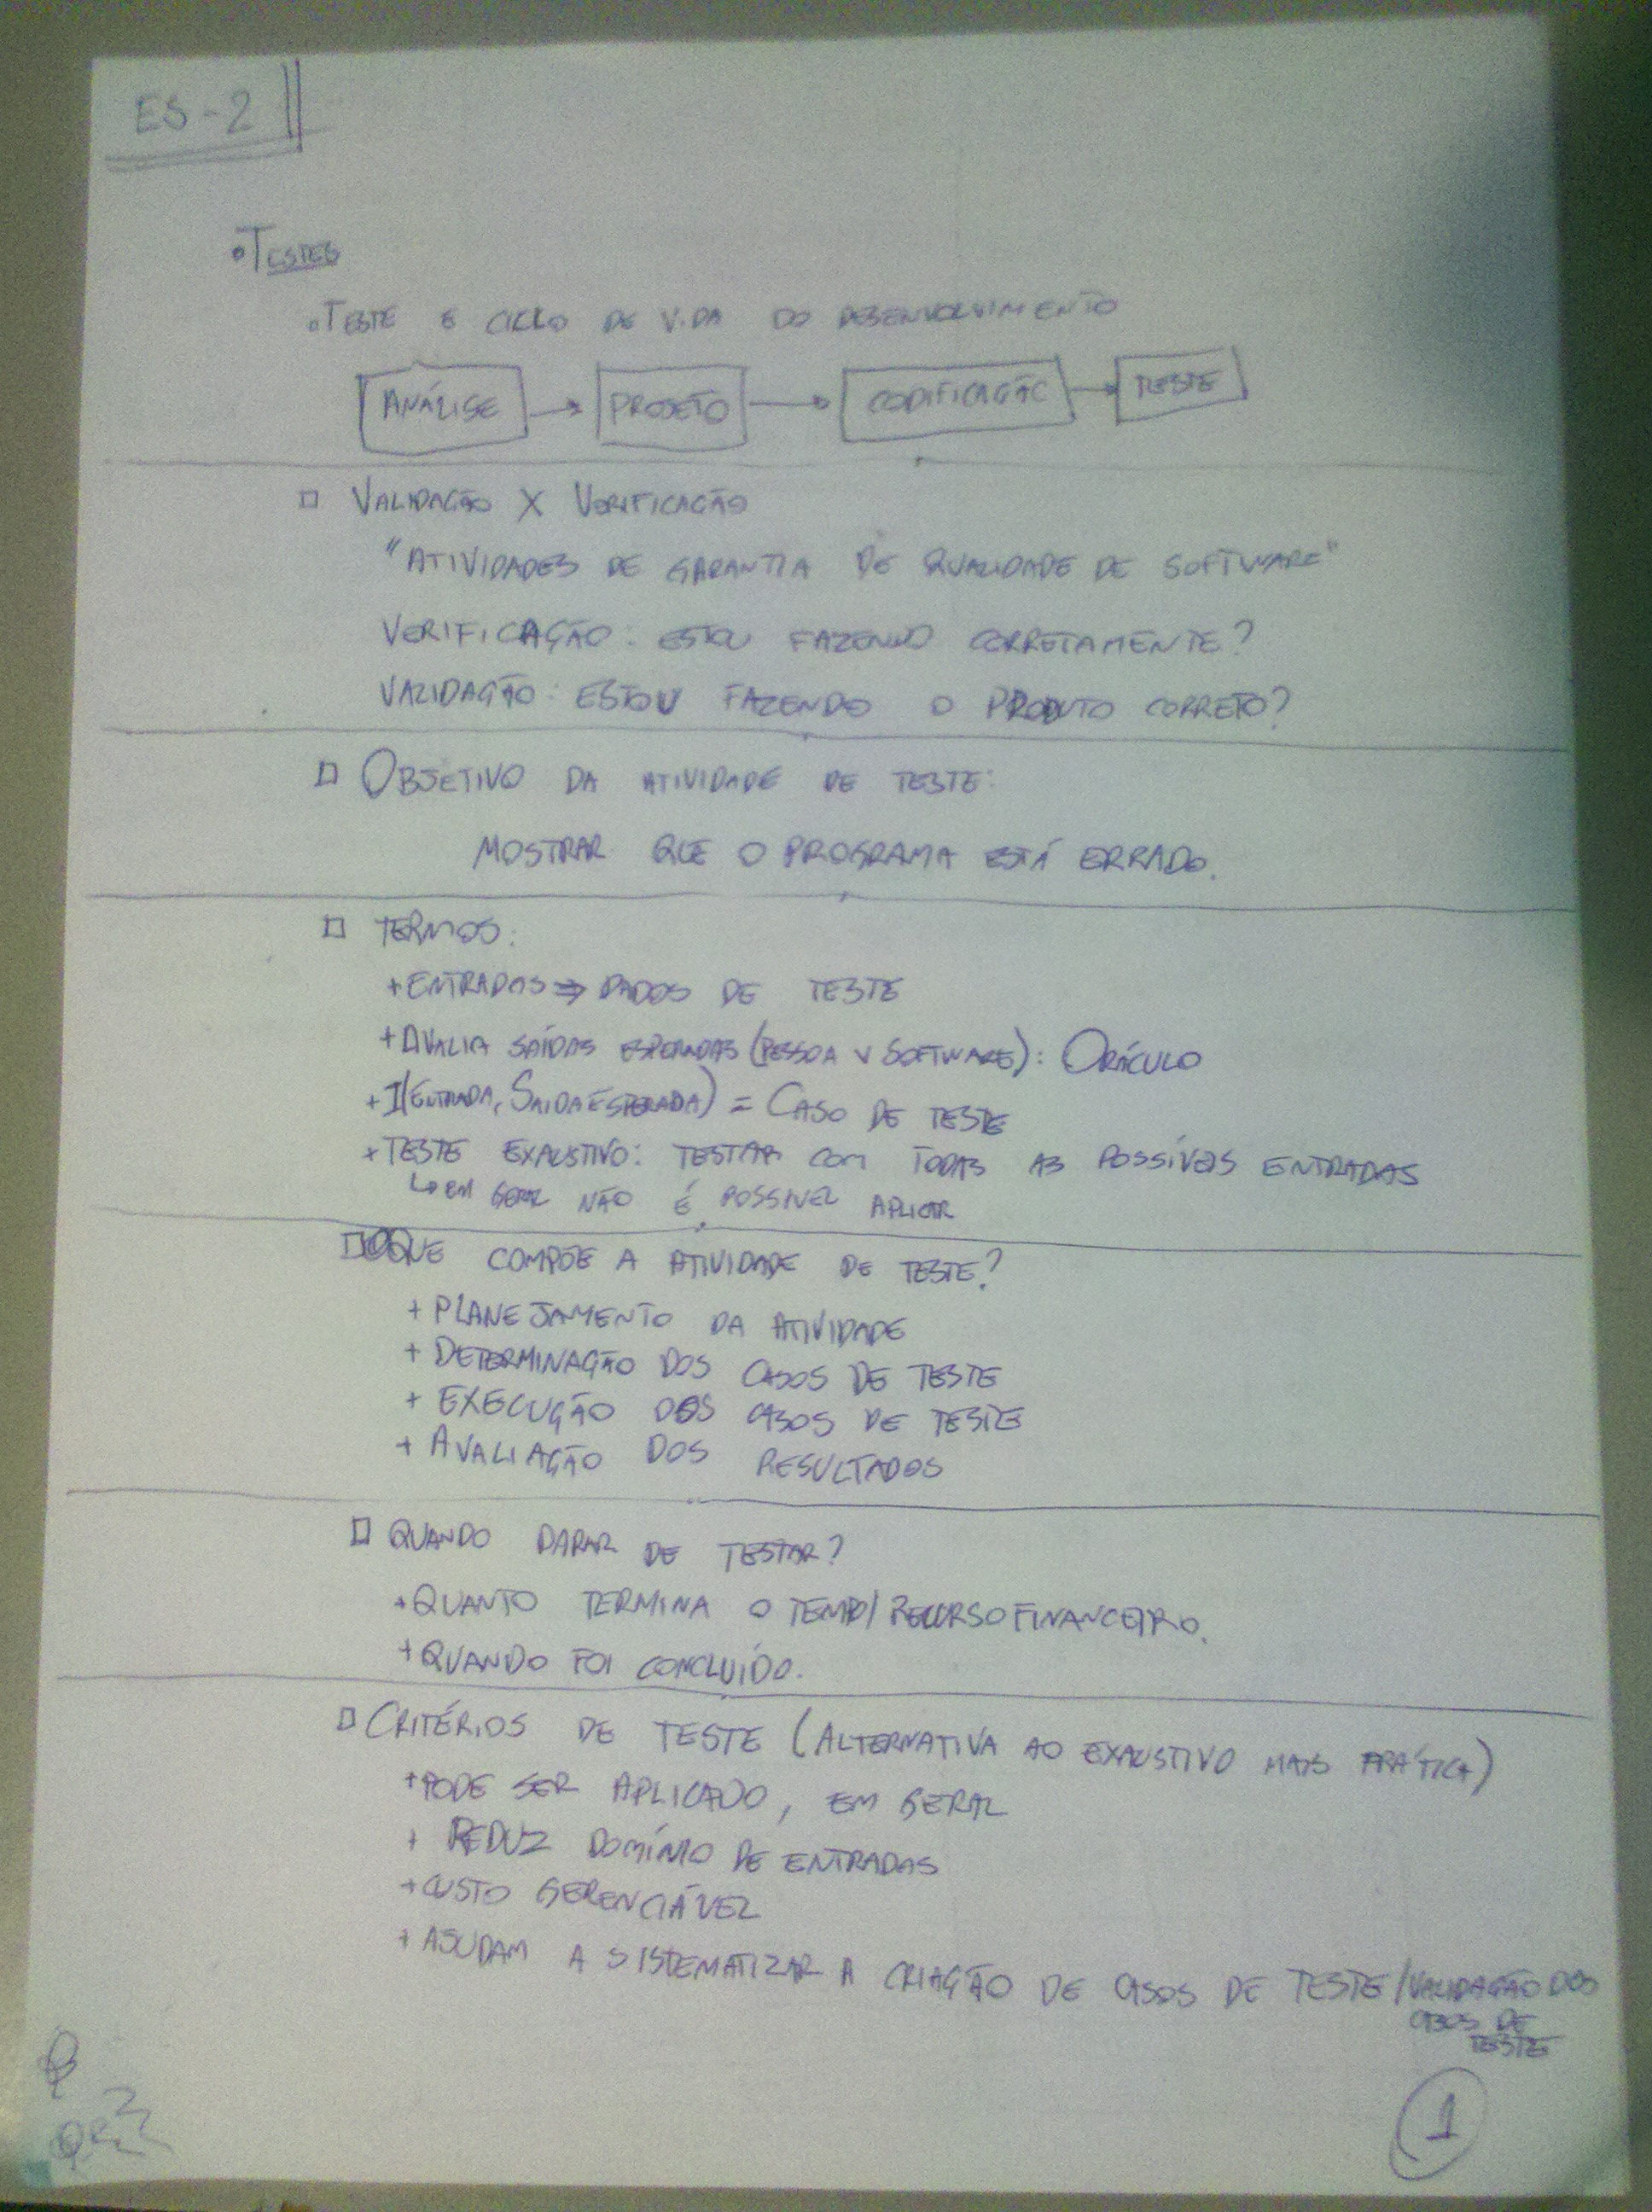 ES-2
• TESTES
• TESTE E CICLO DE VIDA DO DESENVOLVIMENTO
ANÁLISE → PROJETO → CODIFICAÇÃO → TESTE
□ VALIDAÇÃO X VERIFICAÇÃO
"ATIVIDADES DE GARANTIA DE QUALIDADE DE SOFTWARE"
VERIFICAÇÃO: ESTOU FAZENDO CORRETAMENTE?
VALIDAÇÃO: ESTOU FAZENDO O PRODUTO CORRETO?
□ OBJETIVO DA ATIVIDADE DE TESTE:
MOSTRAR QUE O PROGRAMA ESTÁ ERRADO.
□ TERMOS:
+ ENTRADAS ⇒ DADOS DE TESTE
+ AVALIA SAÍDAS ESPERADAS (PESSOA V SOFTWARE): ORÁCULO
+ (ENTRADA, SAIDA ESPERADA) = CASO DE TESTE
+ TESTE EXAUSTIVO: TESTAR COM TODAS AS POSSÍVEIS ENTRADAS
↳ EM GERAL NÃO É POSSIVEL APLICAR
□ O QUE COMPÕE A ATIVIDADE DE TESTE?
+ PLANEJAMENTO DA ATIVIDADE
+ DETERMINAÇÃO DOS CASOS DE TESTE
+ EXECUÇÃO DOS CASOS DE TESTE
+ AVALIAÇÃO DOS RESULTADOS
□ QUANDO PARAR DE TESTAR?
+ QUANTO TERMINA O TEMPO/RECURSO FINANCEIRO.
+ QUANDO FOI CONCLUÍDO.
□ CRITÉRIOS DE TESTE (ALTERNATIVA AO EXAUSTIVO MAIS PRÁTICA)
+ PODE SER APLICADO, EM GERAL
+ REDUZ DOMÍNIO DE ENTRADAS
+ CUSTO GERENCIÁVEL
+ AJUDAM A SISTEMATIZAR A CRIAÇÃO DE CASOS DE TESTE/VALIDAÇÃO DOS
CASOS DE
TESTE
1